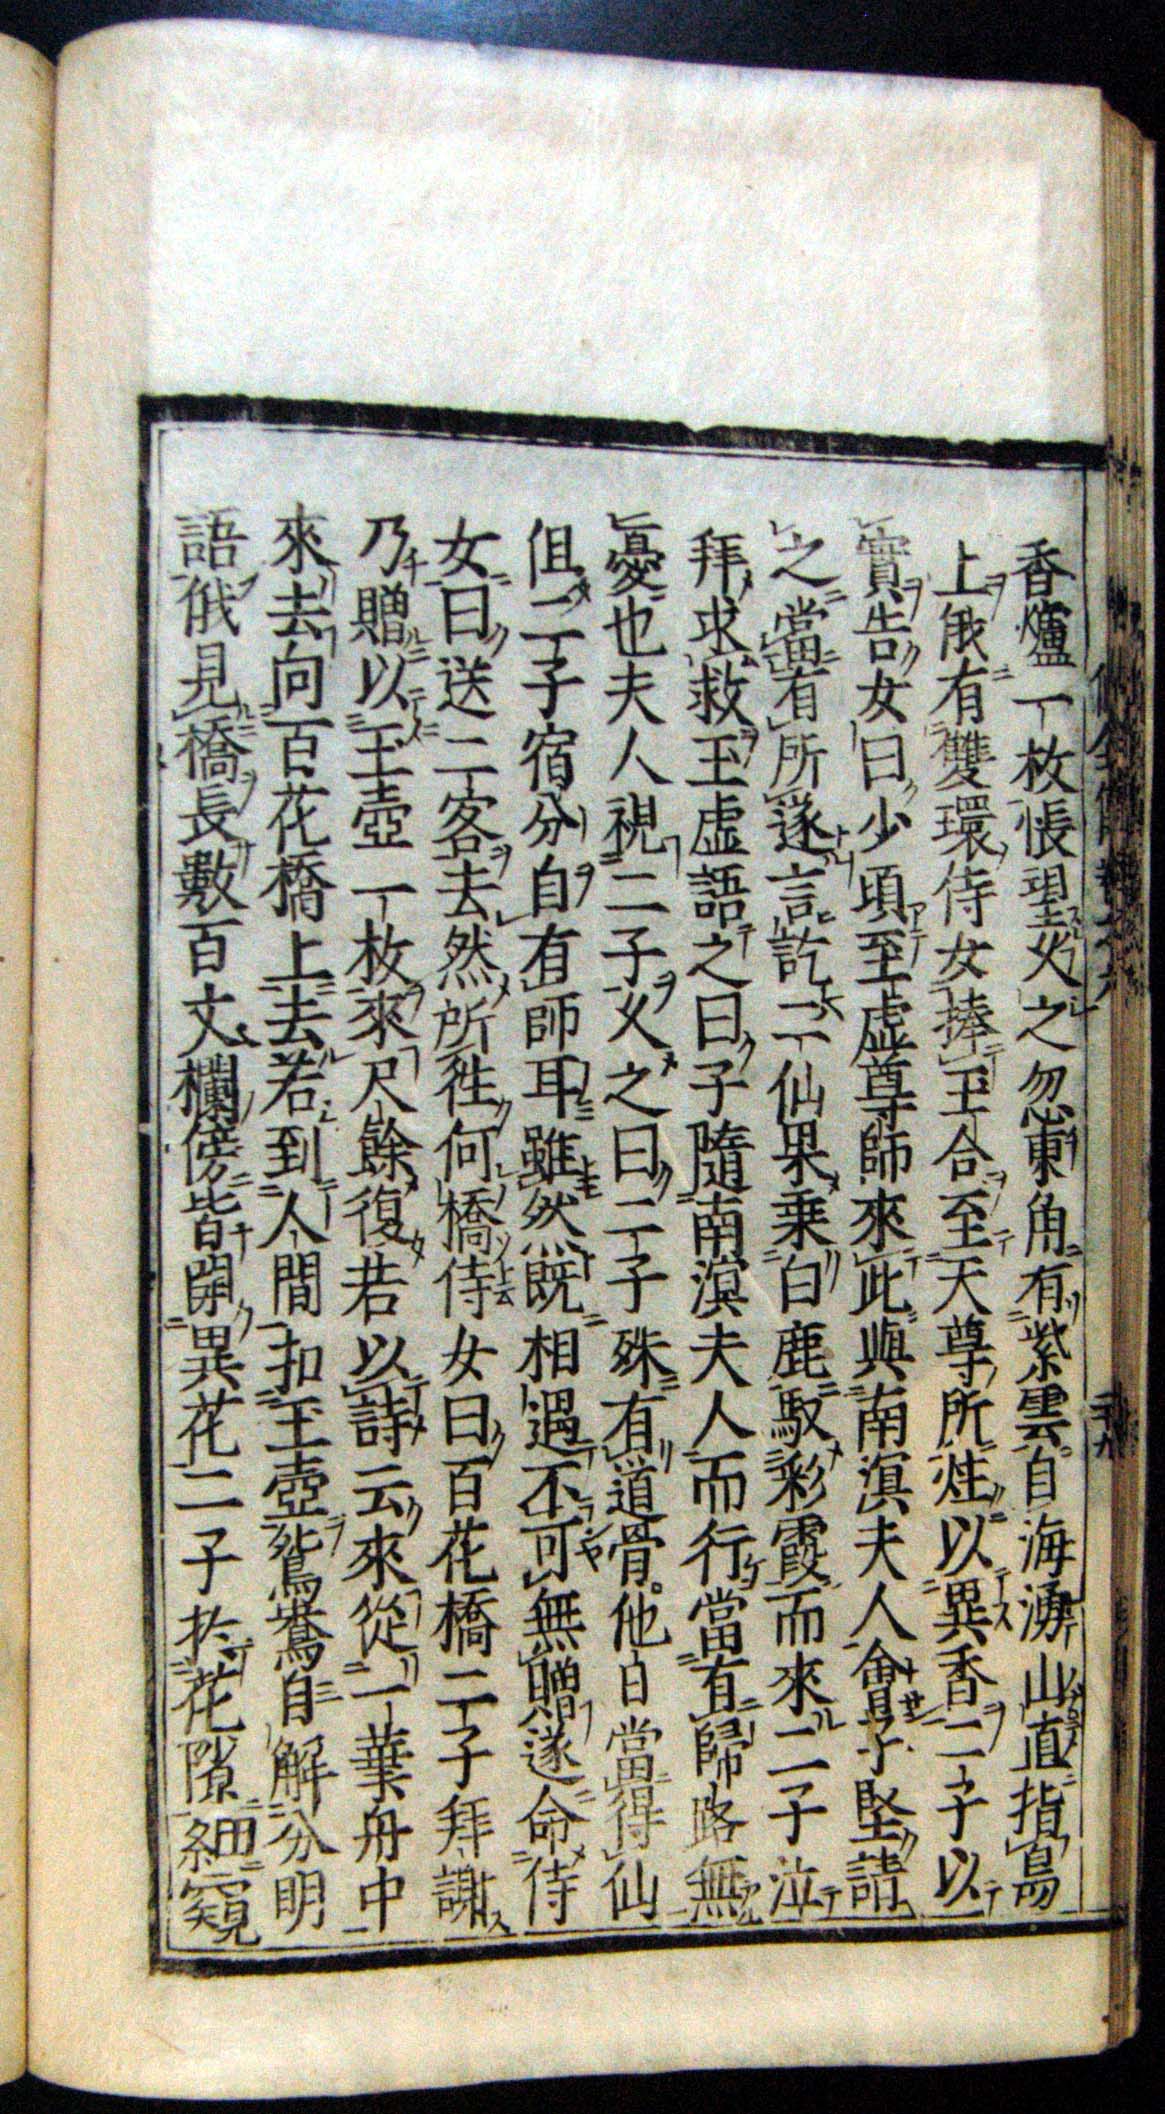 香爐一枚悵望久之忽東角有紫雲自海湧山直指島
上俄有雙環侍女捧玉合至天尊所炷以異香二子以
實告女曰少頃至虛尊師來此與南溟夫人會子堅請
之當有所遂言訖一仙果乗白鹿馭彩霞而來二子泣
拜求救玉虛語之曰子隨南溟夫人而行當有歸路無
憂也夫人視二子久之曰二子殊有道骨他日當得仙
但二子宿分自有師耳雖然既相遇不可無贈遂命侍
女曰送二客去然所徃何橋侍女曰百花橋二子拜謝
乃贈以玉壺一枚來尺餘復若以詩云來從一葉舟中
來去向百花橋上去若到人間扣玉壺鴛鴦自解分明
語俄見橋長數百丈欄傍皆開異花二子於花隙細窺